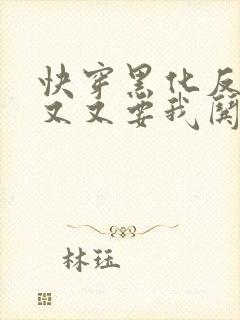 快穿黑化反
又又要我開
林珏